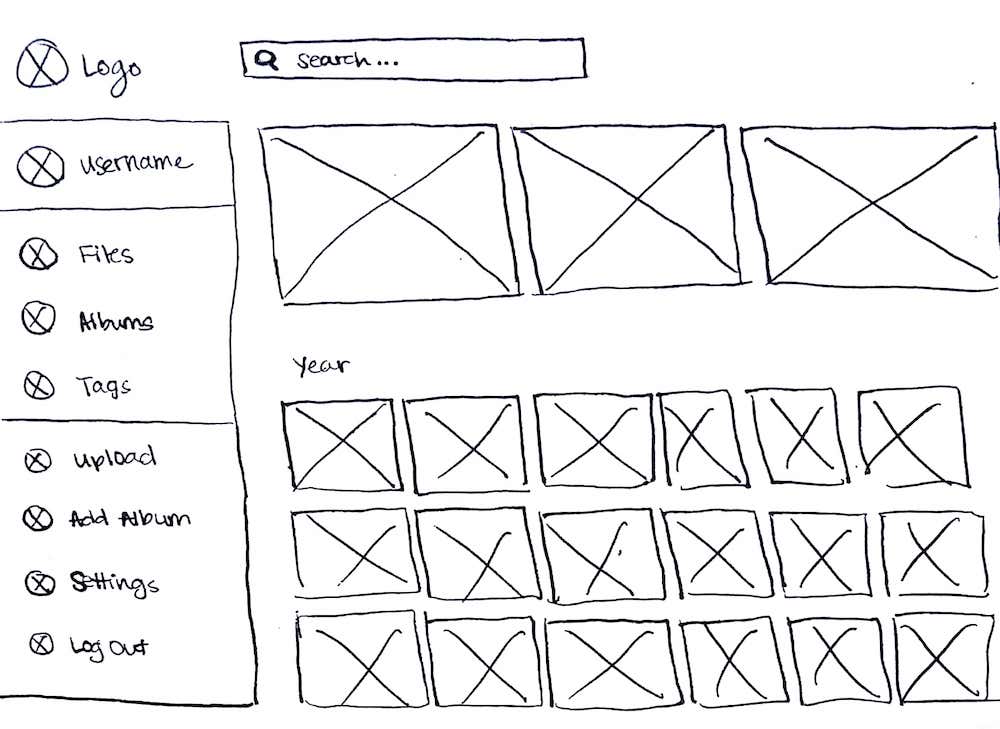 Logo
search...
username
Files
Albums
Tags
Year
upload
Add Album
Settings
Log Out